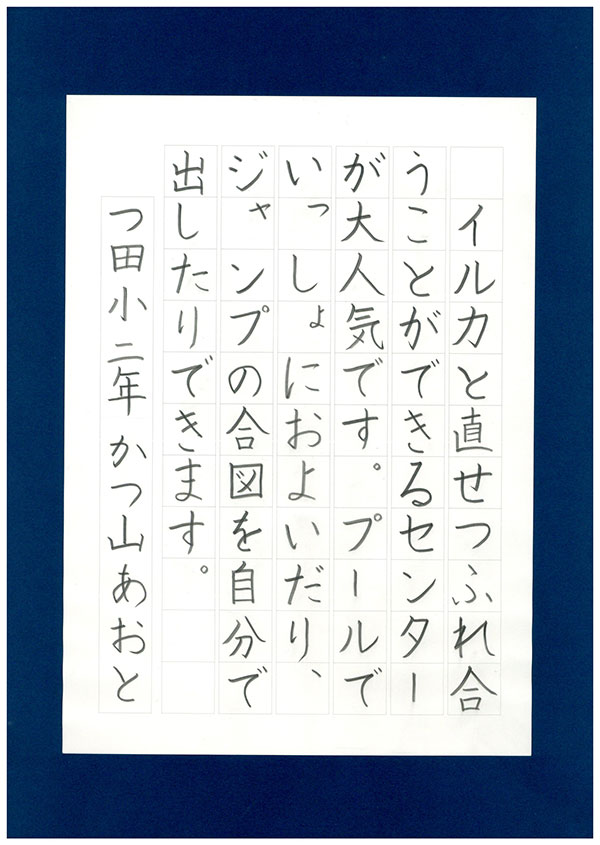 イルカと直せつふれ合
うことができるセンター
が大人気です。プールで
いっしょにおよいだり、
ジャンプの合図を自分で
出したりできます。
つ田小二年かつ山あおと